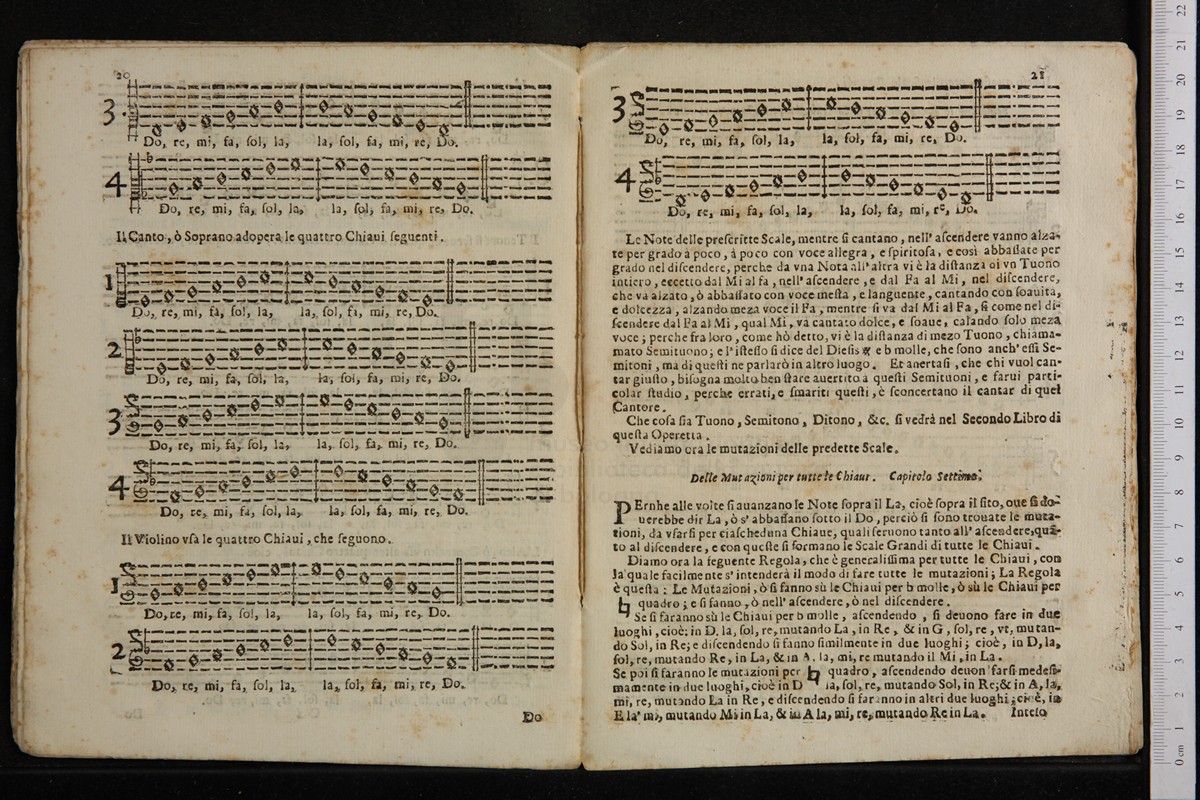 20
3.
Do, re, mi, fa, ſol, la, la, ſol, fa, mi, re, Do.
4
Do, re, mi, fa, ſol, la, la, ſol, fa, mi, re, Do.
Il Canto, ò Soprano adopera le quattro Chiaui ſeguenti.
1
Do, re, mi, fa, ſol, la, la, ſol, fa, mi, re, Do.
2
Do, re, mi, fa, ſol, la, la, ſol, fa, mi, re, Do.
3
Do, re, mi, fa, ſol, la, la, ſol, fa, mi, re, Do.
4
Do, re, mi, fa, ſol, la, la, ſol, fa, mi, re, Do.
Il Violino vſa le quattro Chiaui, che ſeguono.
1
Do, re, mi, fa, ſol, la, la, ſol, fa, mi, re, Do.
2
Do, re, mi, fa, ſol, la, la, ſol, fa, mi, re, Do.
Do
21
3
Do, re, mi, fa, ſol, la, la, ſol, fa, mi, re, Do.
4
Do, re, mi, fa, ſol, la, la, ſol, fa, mi, re, Do.
Le Note delle preſcritte Scale, mentre ſi cantano, nell' aſcendere vanno alza-
te per grado à poco, à poco con voce allegra, e ſpiritoſa, e così abbaſſate per
grado nel diſcendere, perche da vna Nota all' altra vi è la diſtanza di vn Tuono
intiero, eccetto dal Mi al fa, nell' aſcendere, e dal Fa al Mi, nel diſcendere,
che va alzato, ò abbaſſato con voce meſta, e languente, cantando con ſoauita,
e dolcezza, alzando meza voce il Fa, mentre ſi va dal Mi al Fa, ſi come nel di-
ſcendere dal Fa al Mi, qual Mi, va cantato dolce, e ſoaue, calando ſolo meza
voce; perche fra loro, come hò detto, vi è la diſtanza di mezo Tuono, chiama-
mato Semituono; e l' iſteſſo ſi dice del Dieſis ※ e b molle, che ſono anch' eſſi Se-
mitoni, ma di queſti ne parlarò in altro luogo. Et anertaſi, che chi vuol can-
tar giuſto, biſogna molto ben ſtare auertito a queſti Semituoni, e farui parti-
colar ſtudio, perche errati, e ſmariti queſti, è ſconcertato il cantar di quel
Cantore.
Che coſa ſia Tuono, Semitono, Ditono, &c. ſi vedrà nel Secondo Libro di
queſta Operetta.
Vediamo ora le mutazioni delle predette Scale.
Delle Mutazioni per tutte le Chiaui. Capitolo Settimo.
PErnhe alle volte ſi auanzano le Note ſopra il La, cioè ſopra il ſito, oue ſi do-
uerebbe dir La, ò s' abbaſſano ſotto il Do, perciò ſi ſono trouate le muta-
tioni, da vſarſi per ciaſcheduna Chiaue, quali ſeruono tanto all' aſcendere, quā-
to al diſcendere, e con queſte ſi formano le Scale Grandi di tutte le Chiaui.
Diamo ora la ſeguente Regola, che è generaliſſima per tutte le Chiaui, con
la quale facilmente s' intenderà il modo di fare tutte le mutazioni; La Regola
è queſta: Le Mutazioni, ò ſi fanno sù le Chiaui per b molle, ò sù le Chiaui per
♮ quadro; e ſi fanno, ò nell' aſcendere, ò nel diſcendere.
Se ſi faranno sù le Chiaui per b molle, aſcendendo, ſi deuono fare in due
luoghi, cioè: in D. la, ſol, re, mutando La, in Re, & in G, ſol, re, vt, mutan-
do Sol, in Re; e diſcendendo ſi fanno ſimilmente in due luoghi; cioè, in D, la,
ſol, re, mutando Re, in La, & in A. la, mi, re mutando il Mi, in La.
Se poi ſi faranno le mutazioni per ♮ quadro, aſcendendo deuon' farſi medeſi-
mamente in due luoghi, cioè in D la, ſol, re, mutando Sol, in Re; & in A, la,
mi, re, mutando La in Re, e diſcendendo ſi faranno in altri due luoghi; cioè, in
E la' mi, mutando Mi in La, & in A la, mi, re, mutando Re in La. Inteſo
0 cm 1 2 3 4 5 6 7 8 9 10 11 12 13 14 15 16 17 18 19 20 21 22